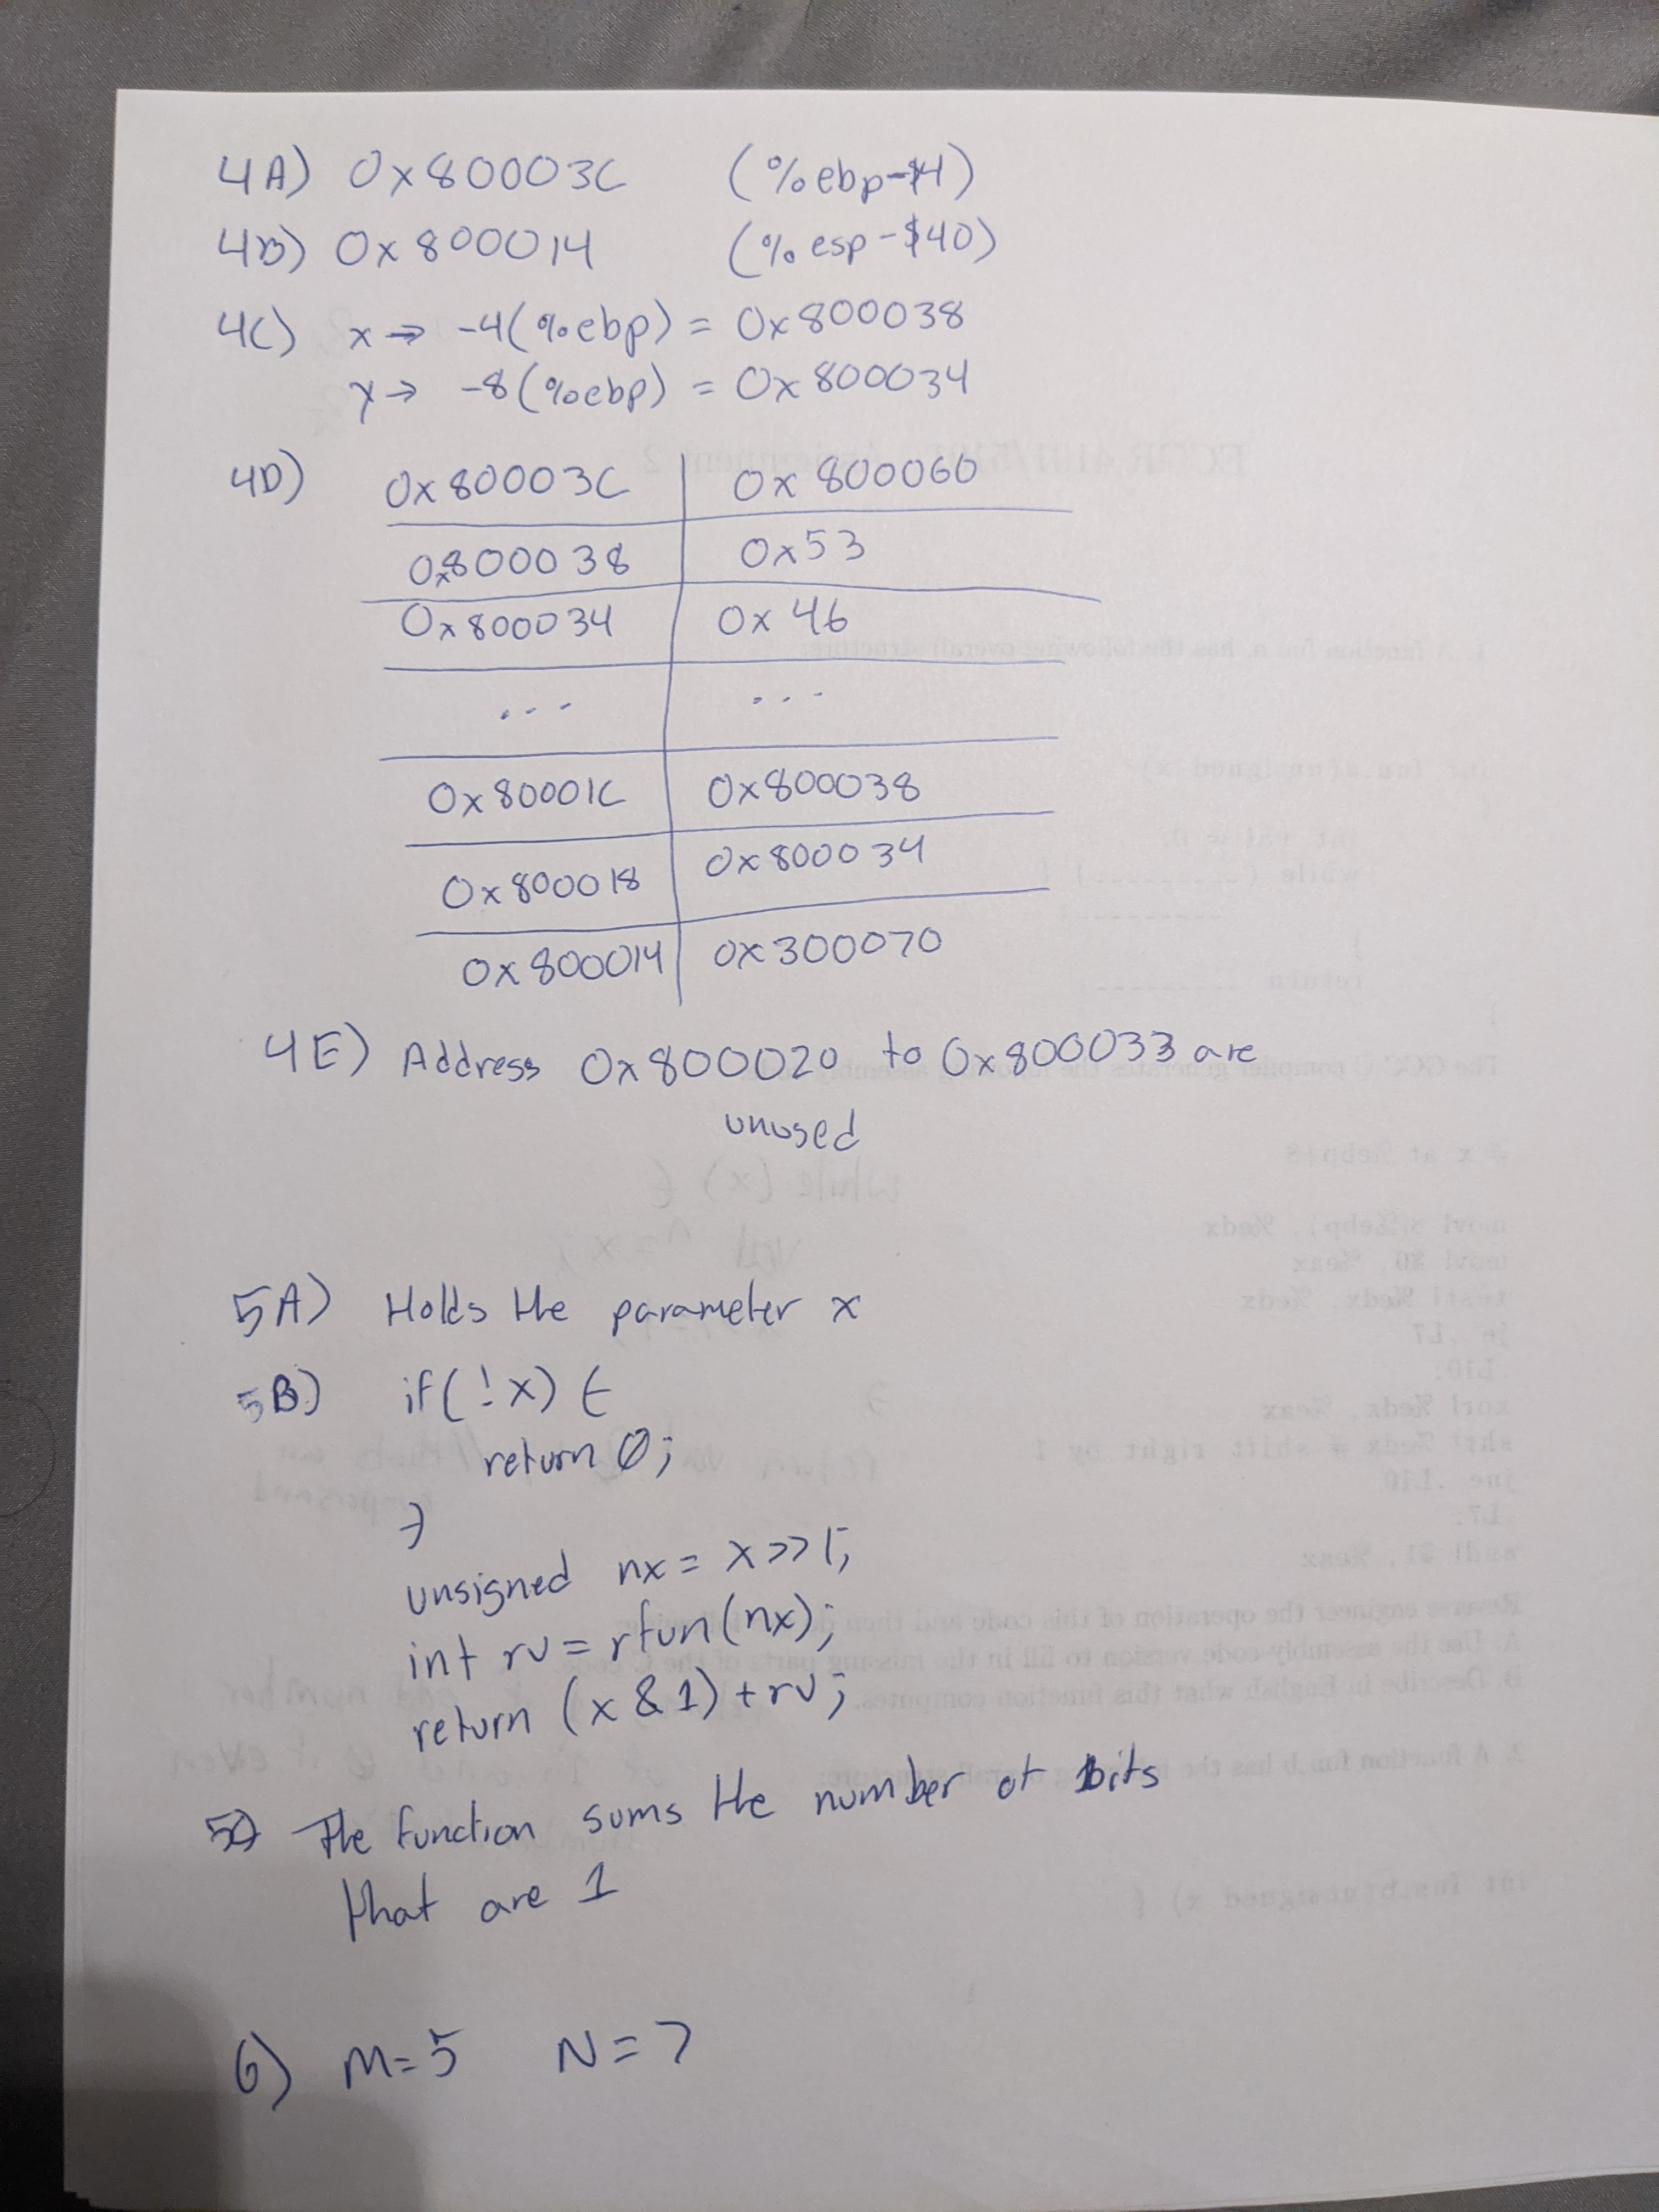 4A) 0x80003C (%ebp-$4)
4B) 0x800014 (%esp-$40)
4C) x → -4(%ebp) = 0x800038
y → -8(%ebp) = 0x800034
4D) 0x80003C 0x800060
0x800038 0x53
0x800034 0x46
... ...
0x80001C 0x800038
0x800018 0x800034
0x800014 0x300070
4E) Address 0x800020 to 0x800033 are
unused
5A) Holds the parameter x
5B) if(!x) {
return 0;
}
unsigned nx = x>>1;
int rv = rfun(nx);
return (x & 1) + rv;
5C) The function sums the number of bits
that are 1
6) M=5 N=7